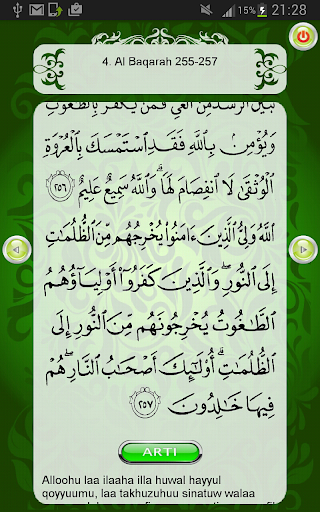 15% 21:28
4. Al Baqarah 255-257
وَيُؤْمِنۢ بِٱللَّهِ فَقَدِ ٱسْتَمْسَكَ بِٱلْعُرْوَةِ
ٱلْوُثْقَىٰ لَا ٱنفِصَامَ لَهَا ۗ وَٱللَّهُ سَمِيعٌ عَلِيمٌ ٢٥٦
ٱللَّهُ وَلِىُّ ٱلَّذِينَ ءَامَنُوا۟ يُخْرِجُهُم مِّنَ ٱلظُّلُمَـٰتِ
إِلَى ٱلنُّورِ ۖ وَٱلَّذِينَ كَفَرُوٓا۟ أَوْلِيَآؤُهُمُ
ٱلطَّـٰغُوتُ يُخْرِجُونَهُم مِّنَ ٱلنُّورِ إِلَى
ٱلظُّلُمَـٰتِ ۗ أُو۟لَـٰٓئِكَ أَصْحَـٰبُ ٱلنَّارِ ۖ هُمْ
فِيهَا خَـٰلِدُونَ ٢٥٧
ARTI
Alloohu laa ilaaha illa huwal hayyul
qoyyuumu, laa takhuzuhuu sinatuw walaa